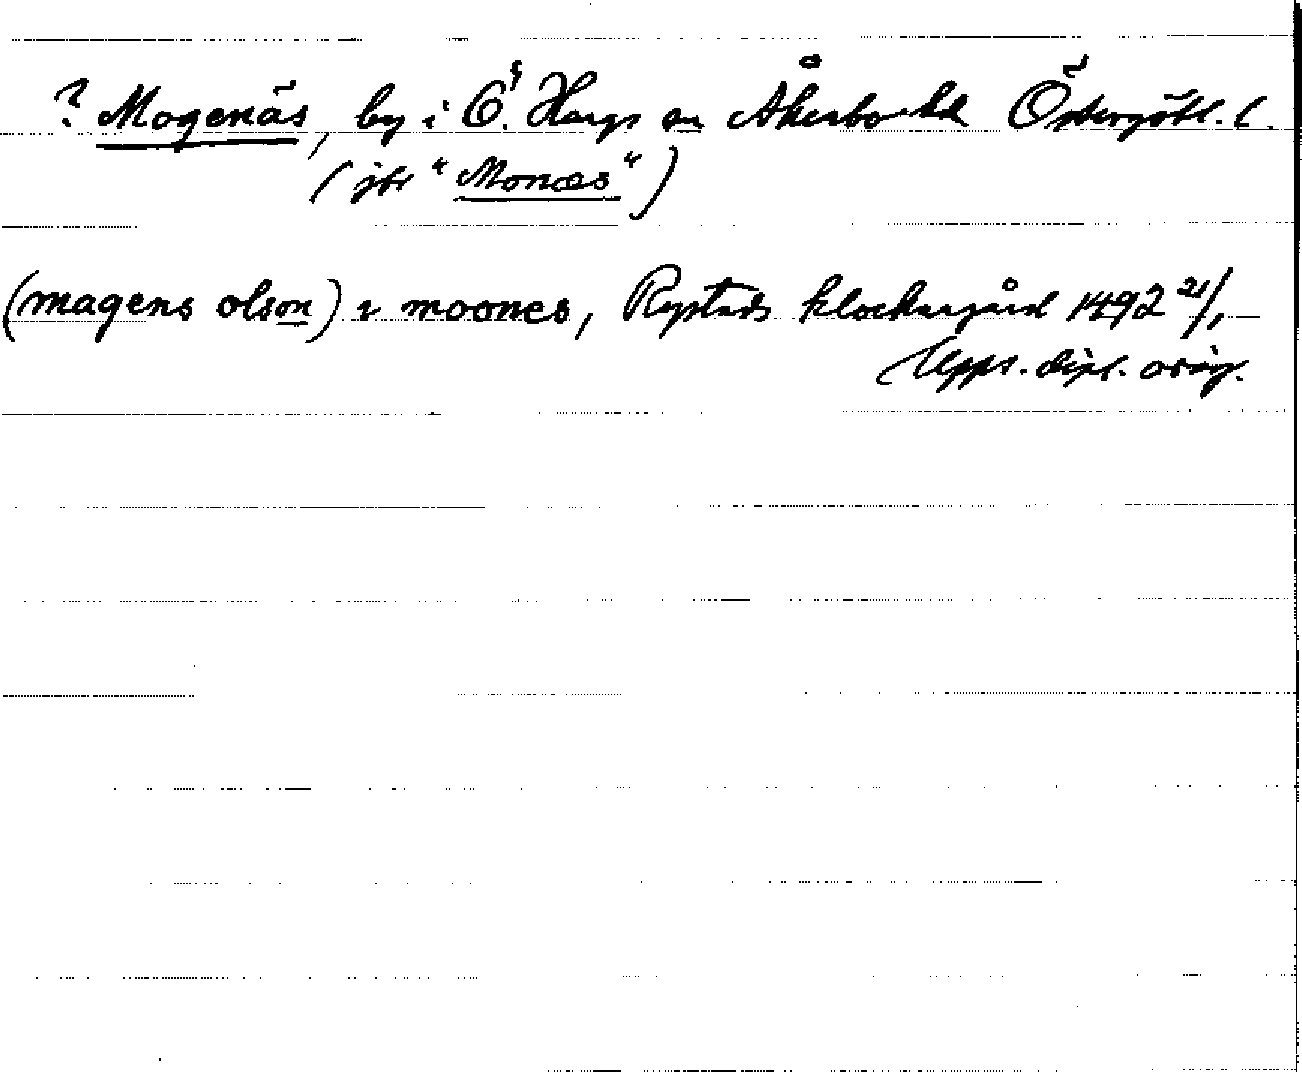 ? Mogenäs, by i Ö. Hargs sn Åkerbo hd Östergötl. l.
(jfr "Monæs")
(magens olson) i moones, Rystads klockargård 1492 21/1
Upps. dipl. orig.